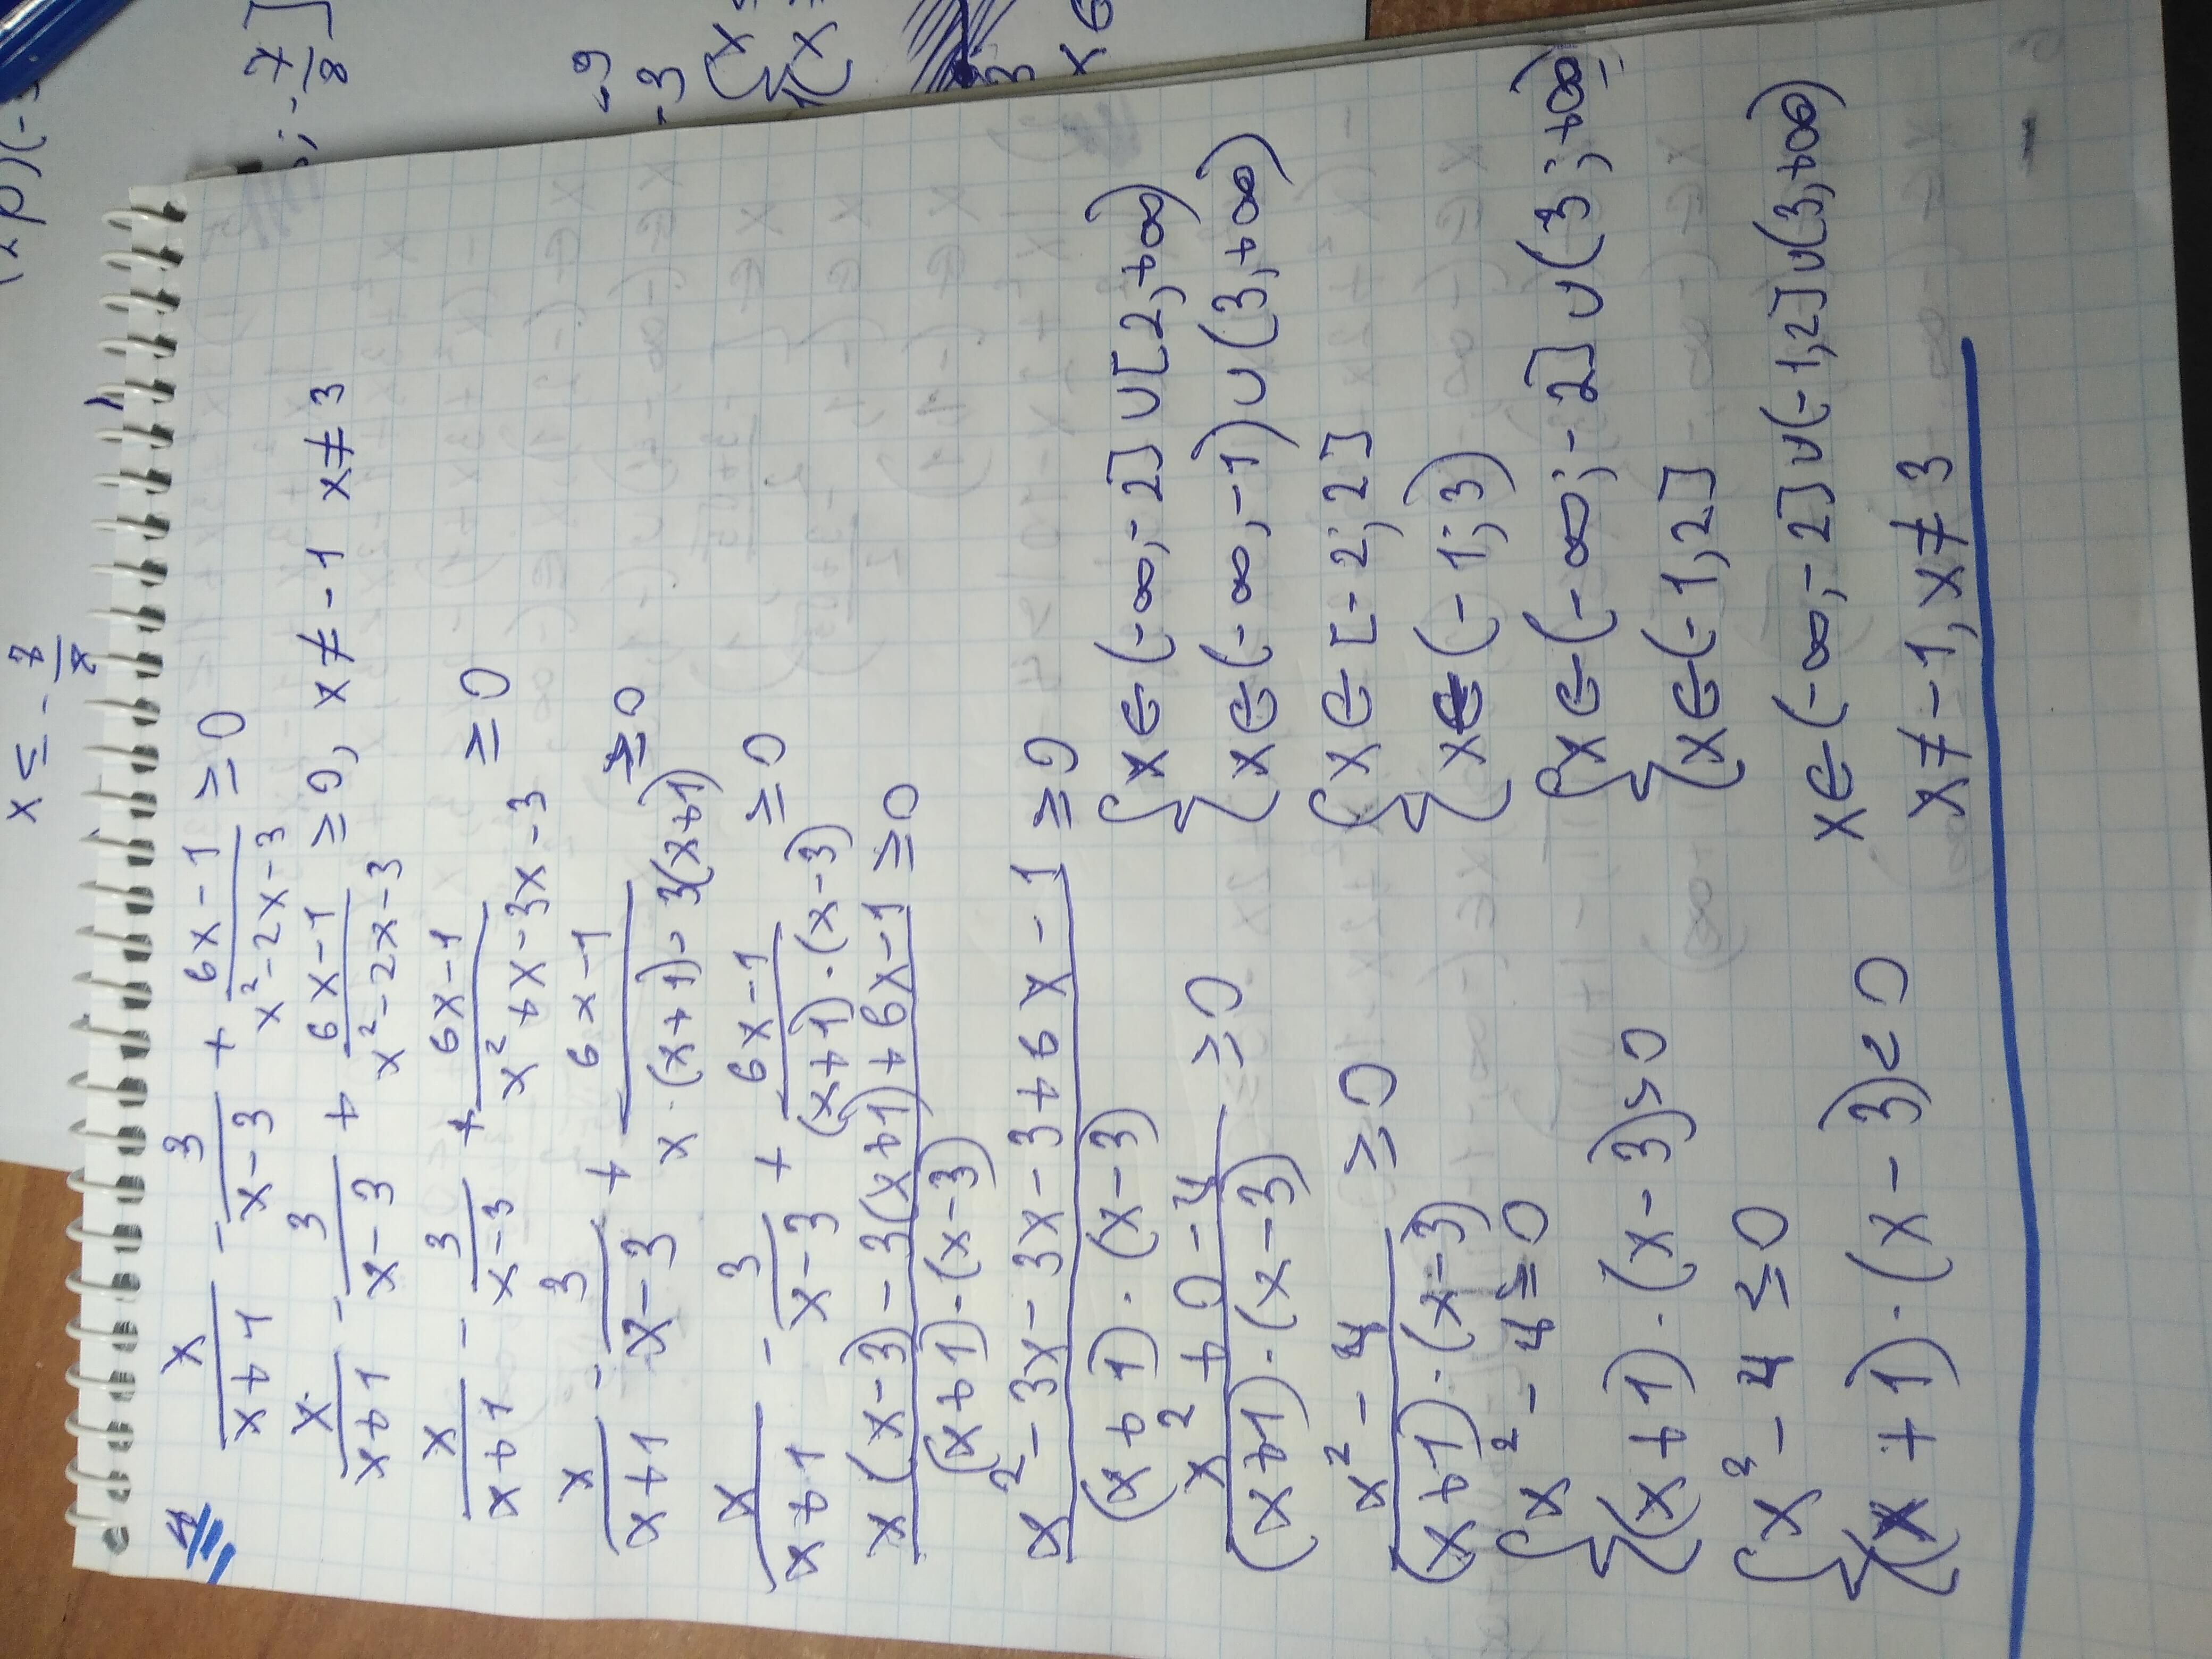 x ≤ - 7/
4
x/(x+1) - 3/(x-3) + (6x-1)/(x²-2x-3) ≥0
x/(x+1) - 3/(x-3) + (6x-1)/(x²-2x-3) ≥0, x≠-1 x≠3
x/(x+1) - 3/(x-3) + (6x-1)/(x²+x-3x-3) ≥0
x/(x+1) - 3/(x-3) + (6x-1)/(x·(x+1)-3(x+1)) ≥0
x/(x+1) - 3/(x-3) + (6x-1)/((x+1)·(x-3)) ≥0
(x(x-3)-3(x+1)+6x-1)/((x+1)·(x-3)) ≥0
(x²-3x-3x-3+6x-1)/((x+1)·(x-3)) ≥0
(x²+0-4)/((x+1)·(x-3)) ≥0
(x²-4)/((x+1)·(x-3)) ≥0
{x²-4≥0
{(x+1)·(x-3)>0
{x²-4≤0
{(x+1)·(x-3)<0
{x∈(-∞,-2]∪[2,+∞)
{x∈(-∞,-1)∪(3,+∞)
{x∈[-2;2]
{x∈(-1;3)
{x∈(-∞;-2]∪(3;+∞)
{x∈(-1,2]
x∈(-∞,-2]∪(-1,2]∪(3,+∞)
x≠-1, x≠3
-7/8]
-9
-3